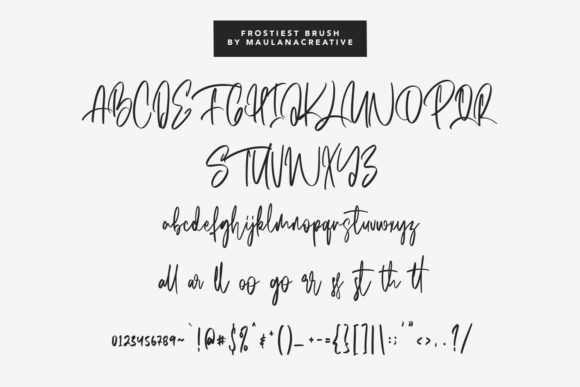 FROSTIEST BRUSH
BY MAULANACREATIVE
ABCDEFGHIJKLMNOPQR
STUVWXYZ
abcdefghijklmnopqrstuvwxyz
all ar ll oo go qr ss st th tt
0123456789~`!@#$%^&*()_+-={}[]|\:;'"<>,.?/